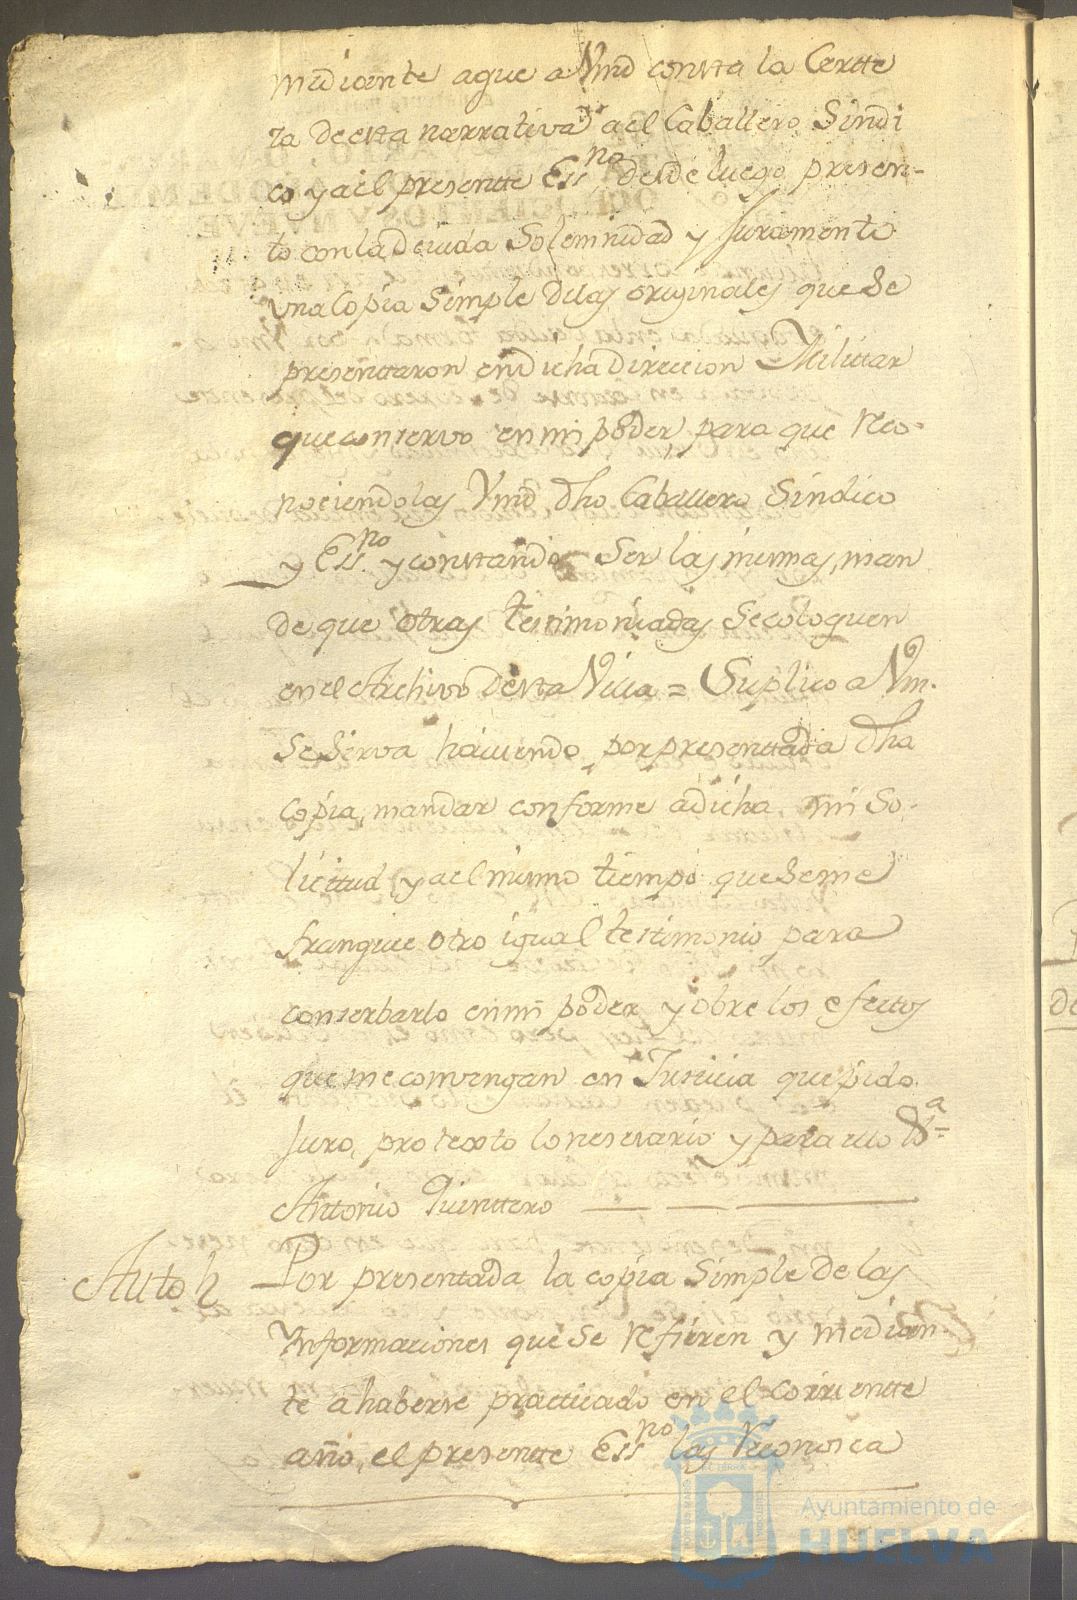 mediante aque a Vmd consta la Certte
za de esta narrativa, a el Caballero Sindi
co y a el presentte Essno, desde luego presen-
to con la devida Solemnidad y Juramento
una Copia Simple de las originales que se
presenttaron en dicha direccion Militar
que conservo en mi poder para que reco-
nociendolas Vmd dho Caballero Sindico
y Essno y constando Ser las mismas, man
de que otras testimoniadas Se coloquen
en el Archivo de esta Villa = Suplico a Vm.
Se Sirva haviendo por presenttada dha
copia, mandar conforme a dicha mi So-
licittud y a el mismo tiempo que Se me
franquie otro igual testimonio para
conserbarlo en mi poder y obre los efectos
que me convengan en Justicia que pido
Juro, protexto lo nesesario y para ello &a
Antonio Quinttero
Auto Por presentada la copia Simple de las
Ynformaciones que se refieren y median-
te a haberse practicado en el corrientte
año, el presentte Essno las reconosca
Ayuntamiento de
HUELVA